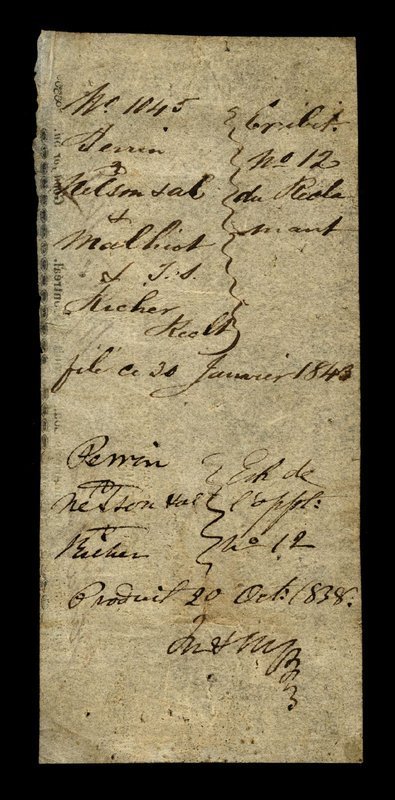 No. 1045
Perrin
&
Nelson & al
&
Malhiot
& T. S.
Richer
Reclt
Exibit
No 12
du Recla
mant
filé ce 20 Janvier 1843
Perrin
Nelson & al
Richer
Exh de
l'appt:
No 12
Produit 20 Oct: 1838.